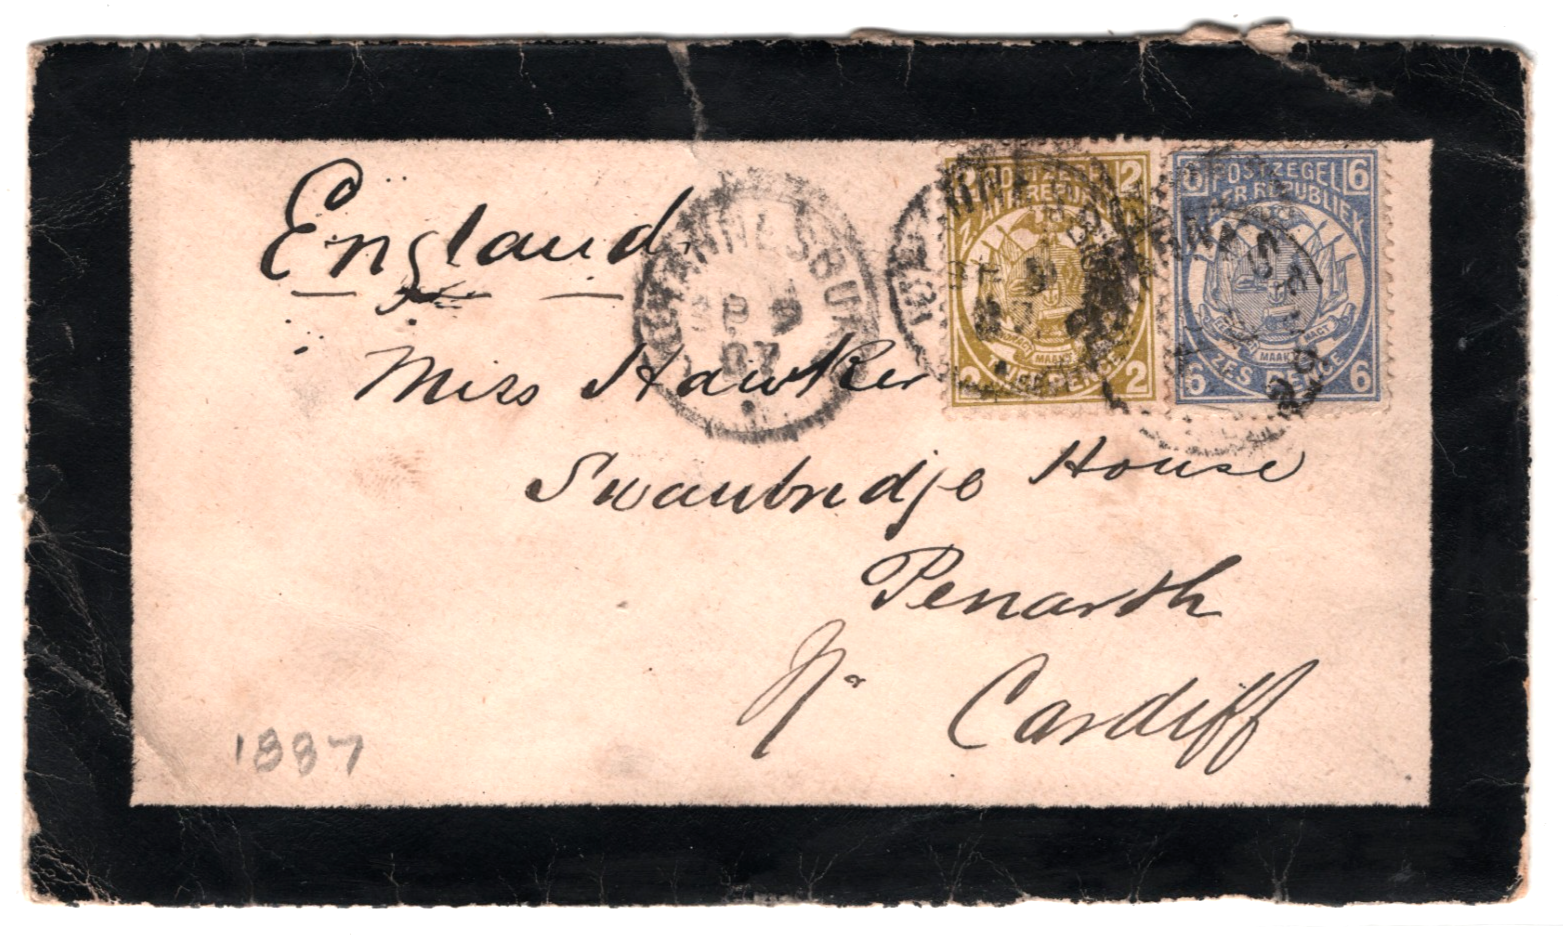 England
Miss Hawker
Swanbridge House
Penarth
Nr Cardiff
1887
JOHANNESBURG
87
2 POSTZEGEL 2
Z. AFR. REPUBLIEK
EENDRAGT MAAKT MAGT
2 TWEE PENCE 2
6 POSTZEGEL 6
Z. AFR. REPUBLIEK
EENDRAGT MAAKT MAGT
6 ZES PENCE 6